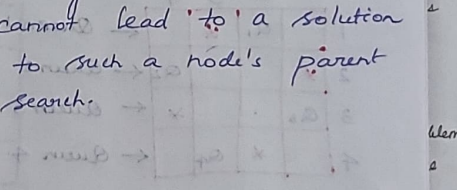 cannot lead 'to' a solution
to such a node's parent
search.